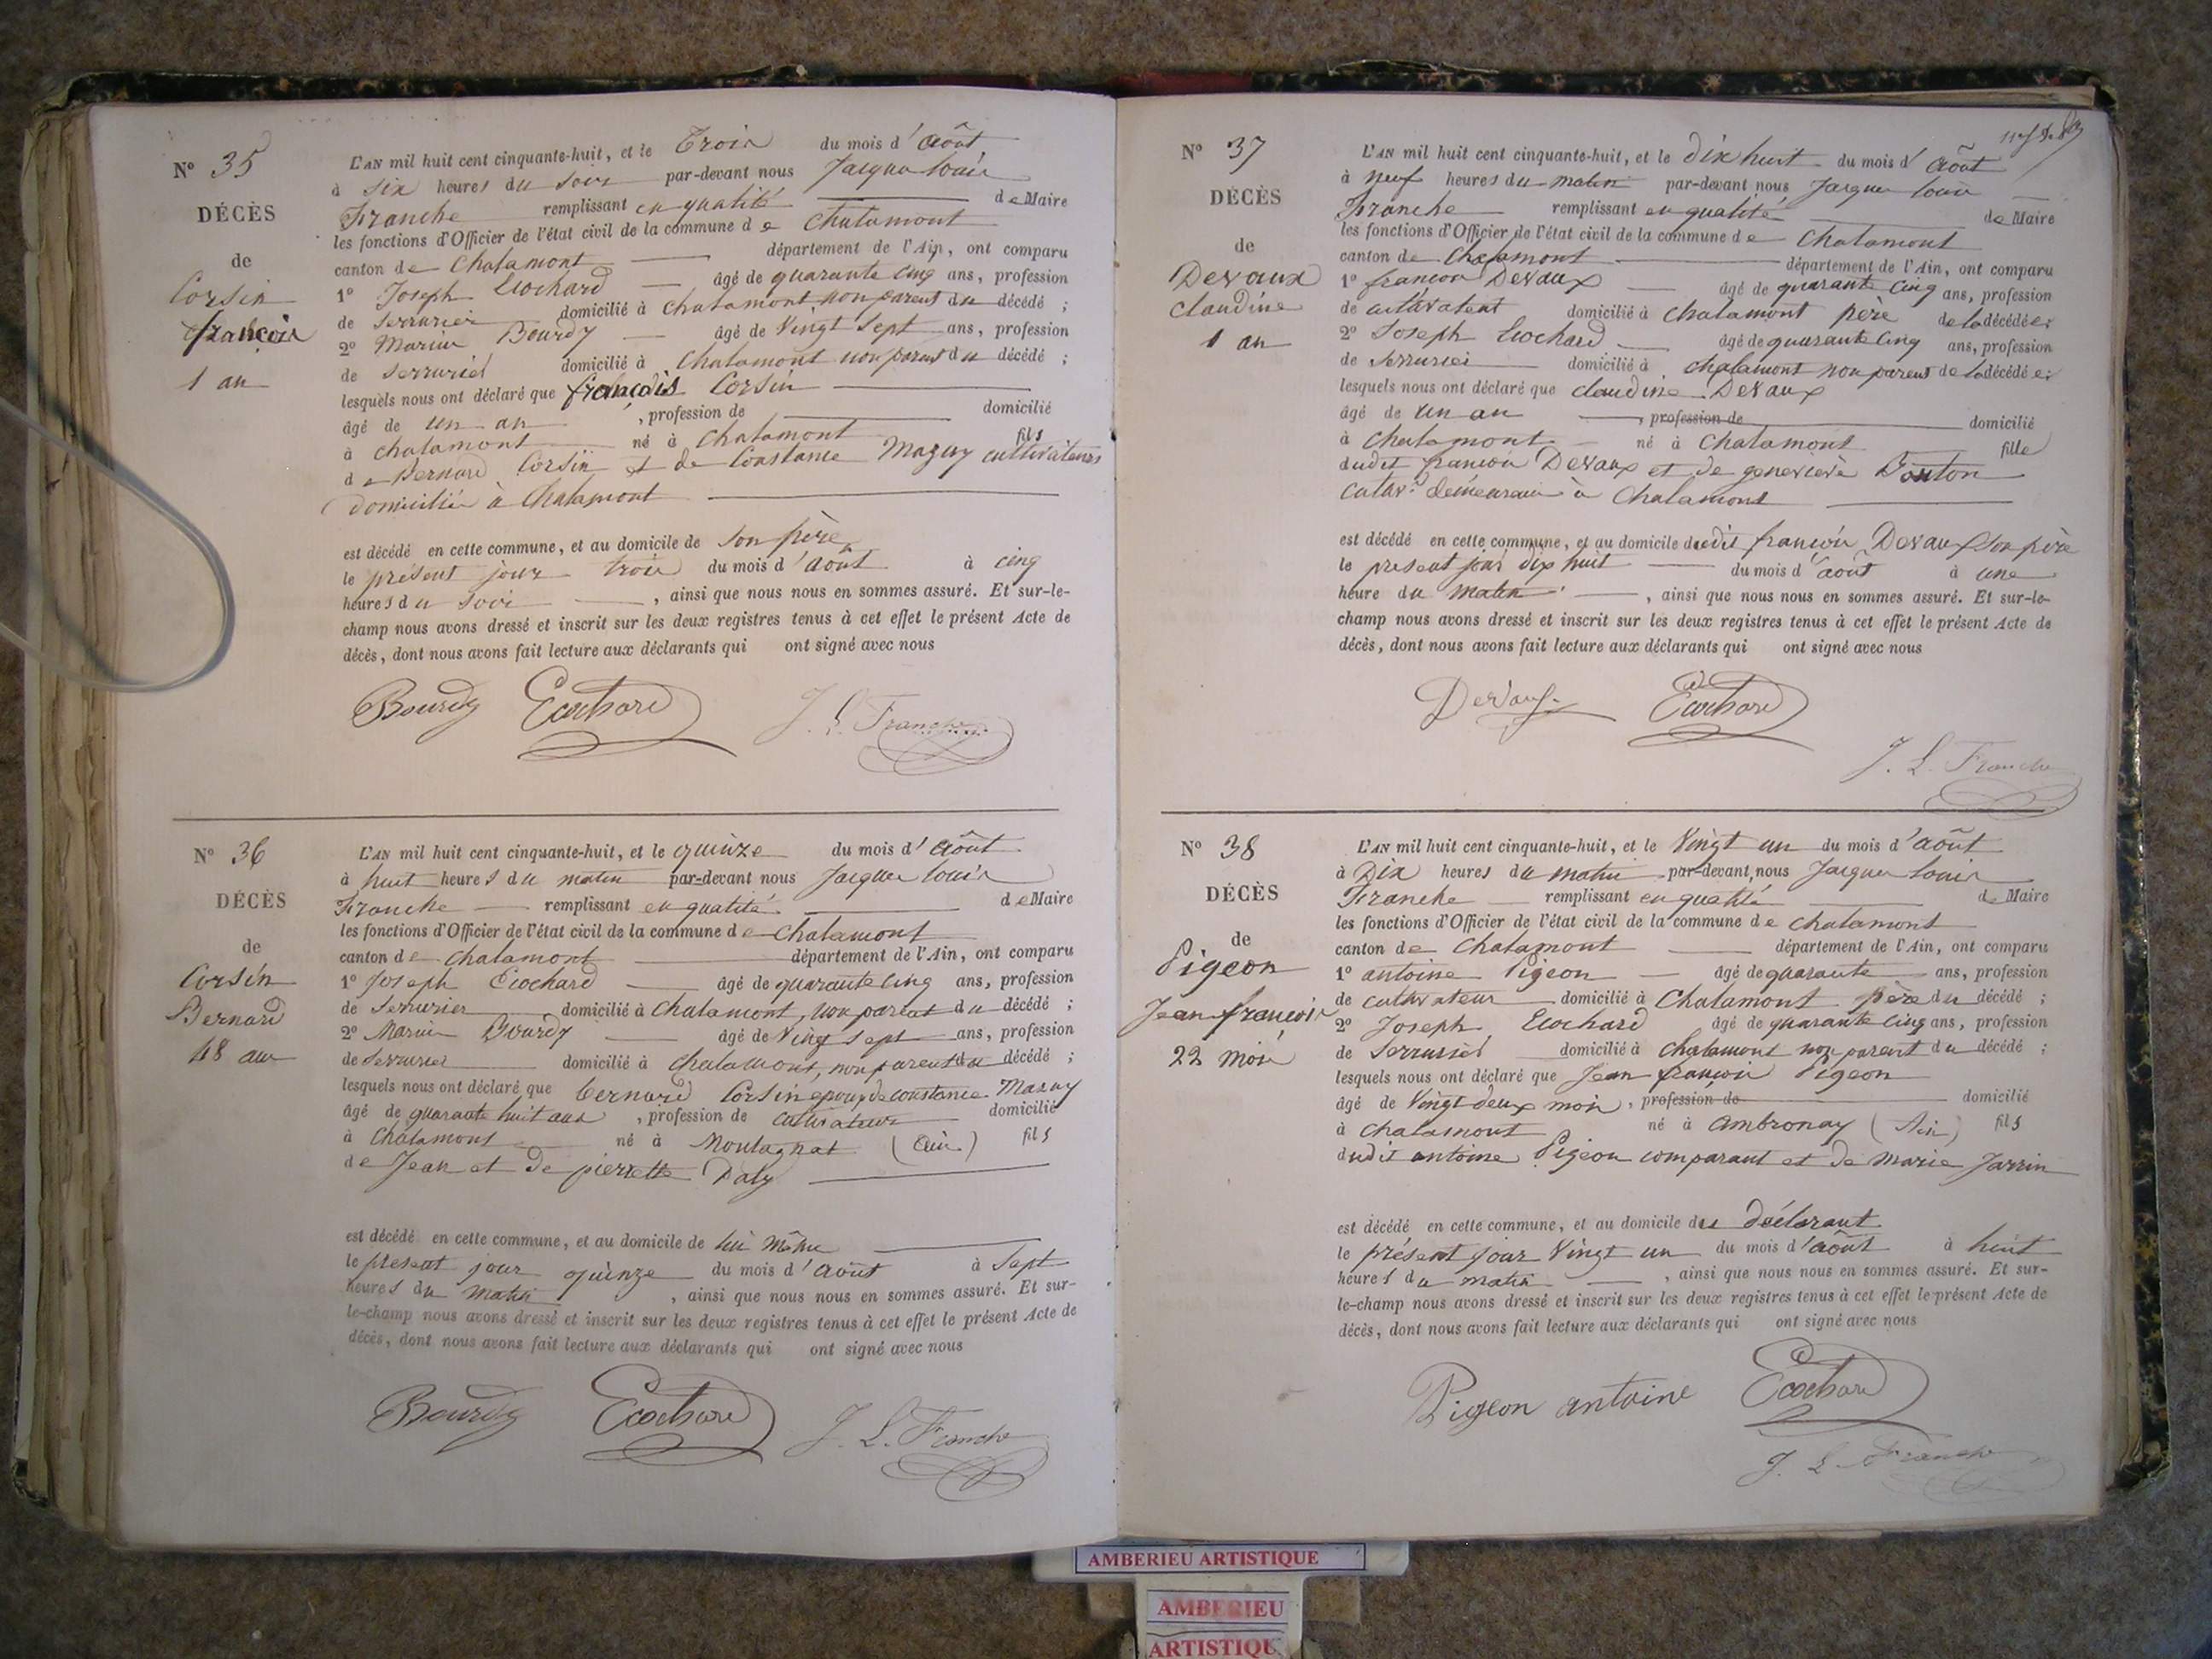 N° 35
DÉCÈS
de
Corsin
françois
1 an
L'AN mil huit cent cinquante-huit, et le Trois du mois d'Août
à six heures du soir par-devant nous Jacques Louis
Franche remplissant en qualité de Maire
les fonctions d'Officier de l'état civil de la commune de Chalamont
canton de Chalamont département de l'Ain, ont comparu
1° Joseph Ecochard âgé de quarante cinq ans, profession
de Serrurier domicilié à Chalamont non parent du décédé ;
2° Marius Bourdy âgé de Vingt Sept ans, profession
de Serrurier domicilié à Chalamont non parent du décédé ;
lesquels nous ont déclaré que françois Corsin
âgé de un an , profession de domicilié
à chalamont né à Chalamont fils
de Bernard Corsin et de Constance Maguy cultivateurs
domiciliés à Chalamont
est décédé en cette commune, et au domicile de son père
le présent jour trois du mois d'août à cinq
heures du soir , ainsi que nous nous en sommes assuré. Et sur-le-
champ nous avons dressé et inscrit sur les deux registres tenus à cet effet le présent Acte de
décès, dont nous avons fait lecture aux déclarants qui ont signé avec nous
Bourdy Ecochard J. L. Franche
N° 36
DÉCÈS
de
Corsin
Bernard
48 ans
L'AN mil huit cent cinquante-huit, et le quinze du mois d'Août
à huit heures du matin par-devant nous Jacques Louis
Franche remplissant en qualité de Maire
les fonctions d'Officier de l'état civil de la commune de Chalamont
canton de chalamont département de l'Ain, ont comparu
1° Joseph Ecochard âgé de quarante cinq ans, profession
de Serrurier domicilié à Chalamont, non parent du décédé ;
2° Marius Bourdy âgé de Vingt Sept ans, profession
de Serrurier domicilié à Chalamont, non parent du décédé ;
lesquels nous ont déclaré que bernard Corsin époux de constance Maguy
âgé de quarante huit ans , profession de cultivateur domicilié
à Chalamont né à Montagnat (Ain) fils
de Jean et de pierrette Daly
est décédé en cette commune, et au domicile de lui même
le présent jour quinze du mois d'août à Sept
heures du matin , ainsi que nous nous en sommes assuré. Et sur-
le-champ nous avons dressé et inscrit sur les deux registres tenus à cet effet le présent Acte de
décès, dont nous avons fait lecture aux déclarants qui ont signé avec nous
Bourdy Ecochard J. L. Franche
N° 37
DÉCÈS
de
Devaux
claudine
1 an
L'AN mil huit cent cinquante-huit, et le dix huit du mois d'Août
à neuf heures du matin par-devant nous Jacques Louis
Franche remplissant en qualité de Maire
les fonctions d'Officier de l'état civil de la commune de Chalamont
canton de Chalamont département de l'Ain, ont comparu
1° françois Devaux âgé de quarante cinq ans, profession
de cultivateur domicilié à Chalamont père de la décédée ;
2° Joseph Ecochard âgé de quarante cinq ans, profession
de Serrurier domicilié à chalamont non parent de la décédée ;
lesquels nous ont déclaré que claudine Devaux
âgé de un an , profession de domicilié
à Chalamont né à Chalamont fille
dudit françois Devaux et de geneviève Bouton
cultivrs demeurant à Chalamont
est décédé en cette commune, et au domicile dudit françois Devaux son père
le présent jour dix huit du mois d'août à une
heure du matin , ainsi que nous nous en sommes assuré. Et sur-le-
champ nous avons dressé et inscrit sur les deux registres tenus à cet effet le présent Acte de
décès, dont nous avons fait lecture aux déclarants qui ont signé avec nous
Devaux Ecochard
J. L. Franche
N° 38
DÉCÈS
de
Pigeon
Jean françois
22 mois
L'AN mil huit cent cinquante-huit, et le Vingt un du mois d'août
à Dix heures du matin par-devant nous Jacques Louis
Franche remplissant en qualité de Maire
les fonctions d'Officier de l'état civil de la commune de Chalamont
canton de Chalamont département de l'Ain, ont comparu
1° antoine Pigeon âgé de quarante ans, profession
de cultivateur domicilié à Chalamont père du décédé ;
2° Joseph Ecochard âgé de quarante cinq ans, profession
de Serrurier domicilié à Chalamont non parent du décédé ;
lesquels nous ont déclaré que Jean françois Pigeon
âgé de Vingt deux mois , profession de domicilié
à chalamont né à Ambronay (Ain) fils
dudit antoine Pigeon comparant et de Marie Jarrin
est décédé en cette commune, et au domicile du déclarant
le présent jour Vingt un du mois d'août à huit
heures du matin , ainsi que nous nous en sommes assuré. Et sur-
le-champ nous avons dressé et inscrit sur les deux registres tenus à cet effet le présent Acte de
décès, dont nous avons fait lecture aux déclarants qui ont signé avec nous
Pigeon antoine Ecochard
J. L. Franche
AMBERIEU ARTISTIQUE
AMBERIEU
ARTISTIQUE